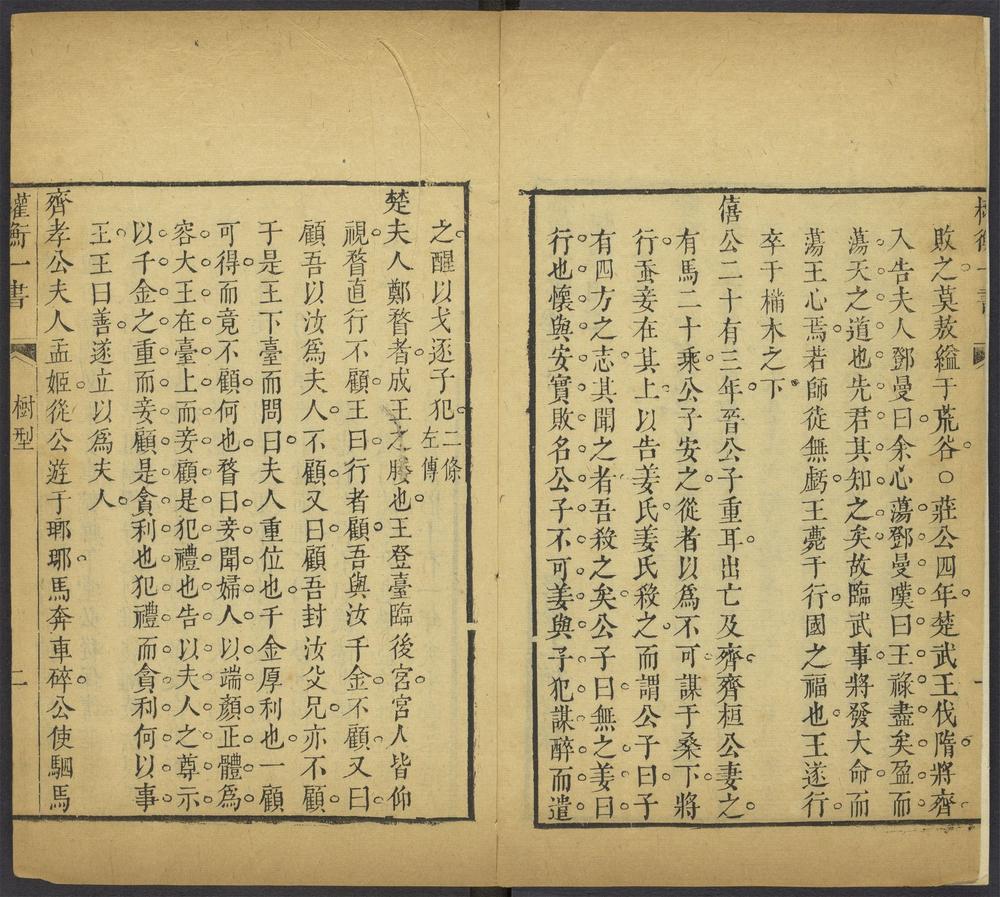 敗之莫敖縊于荒谷○莊公四年楚武王伐隋將齊
入告夫人鄧曼曰余心蕩鄧曼嘆曰王祿盡矣盈而
蕩天之道也先君其知之矣故臨武事將發大命而
蕩王心焉若師徒無虧王薨于行國之福也王遂行
卒于樠木之下
僖公二十有三年晉公子重耳出亡及齊齊桓公妻之
有馬二十乘公子安之從者以爲不可謀于桑下將
行蚕妾在其上以告姜氏姜氏殺之而謂公子曰子
有四方之志其聞之者吾殺之矣公子曰無之姜曰
行也懷與安實敗名公子不可姜與子犯謀醉而遣
一
之醒以戈逐子犯二條左傳
楚夫人鄭瞀者成王之媵也王登臺臨後宮宮人皆仰
視瞀直行不顧王曰行者顧吾與汝千金不顧又曰
顧吾以汝爲夫人不顧又曰顧吾封汝父兄亦不顧
于是王下臺而問曰夫人重位也千金厚利也一顧
可得而竟不顧何也瞀曰妾聞婦人以端顏正體爲
容大王在臺上而妾顧是犯禮也告以夫人之尊示
以千金之重而妾顧是貪利也犯禮而貪利何以事
王王曰善遂立以爲夫人
齊孝公夫人孟姬從公遊于瑯琊馬奔車碎公使駟馬
權衡一書 樹型 二